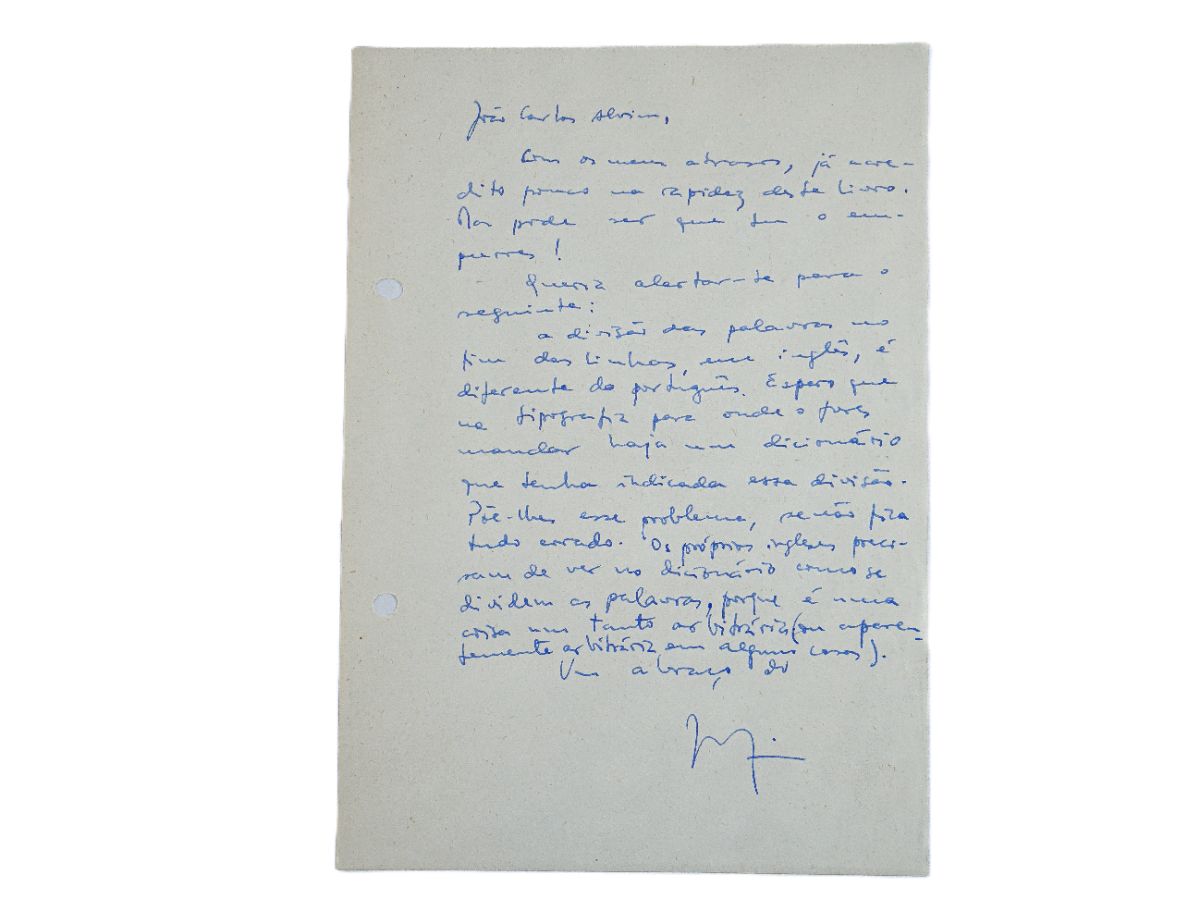 João Carlos Alvim,
Com os meus atrasos, já acre-
dito pouco na rapidez deste livro.
Mas pode ser que tu o em-
purres!
Queria alertar-te para o
seguinte:
a divisão das palavras no
fim das linhas, em inglês, é
diferente do português. Espero que
na tipografia para onde o fores
mandar haja um dicionário
que tenha indicada essa divisão.
Põe-lhes esse problema, senão fica
tudo errado. Os próprios ingleses preci-
sam de ver no dicionário como se
dividem as palavras, porque é uma
coisa um tanto arbitrária (ou aparen-
temente arbitrária, em alguns casos).
Um abraço do